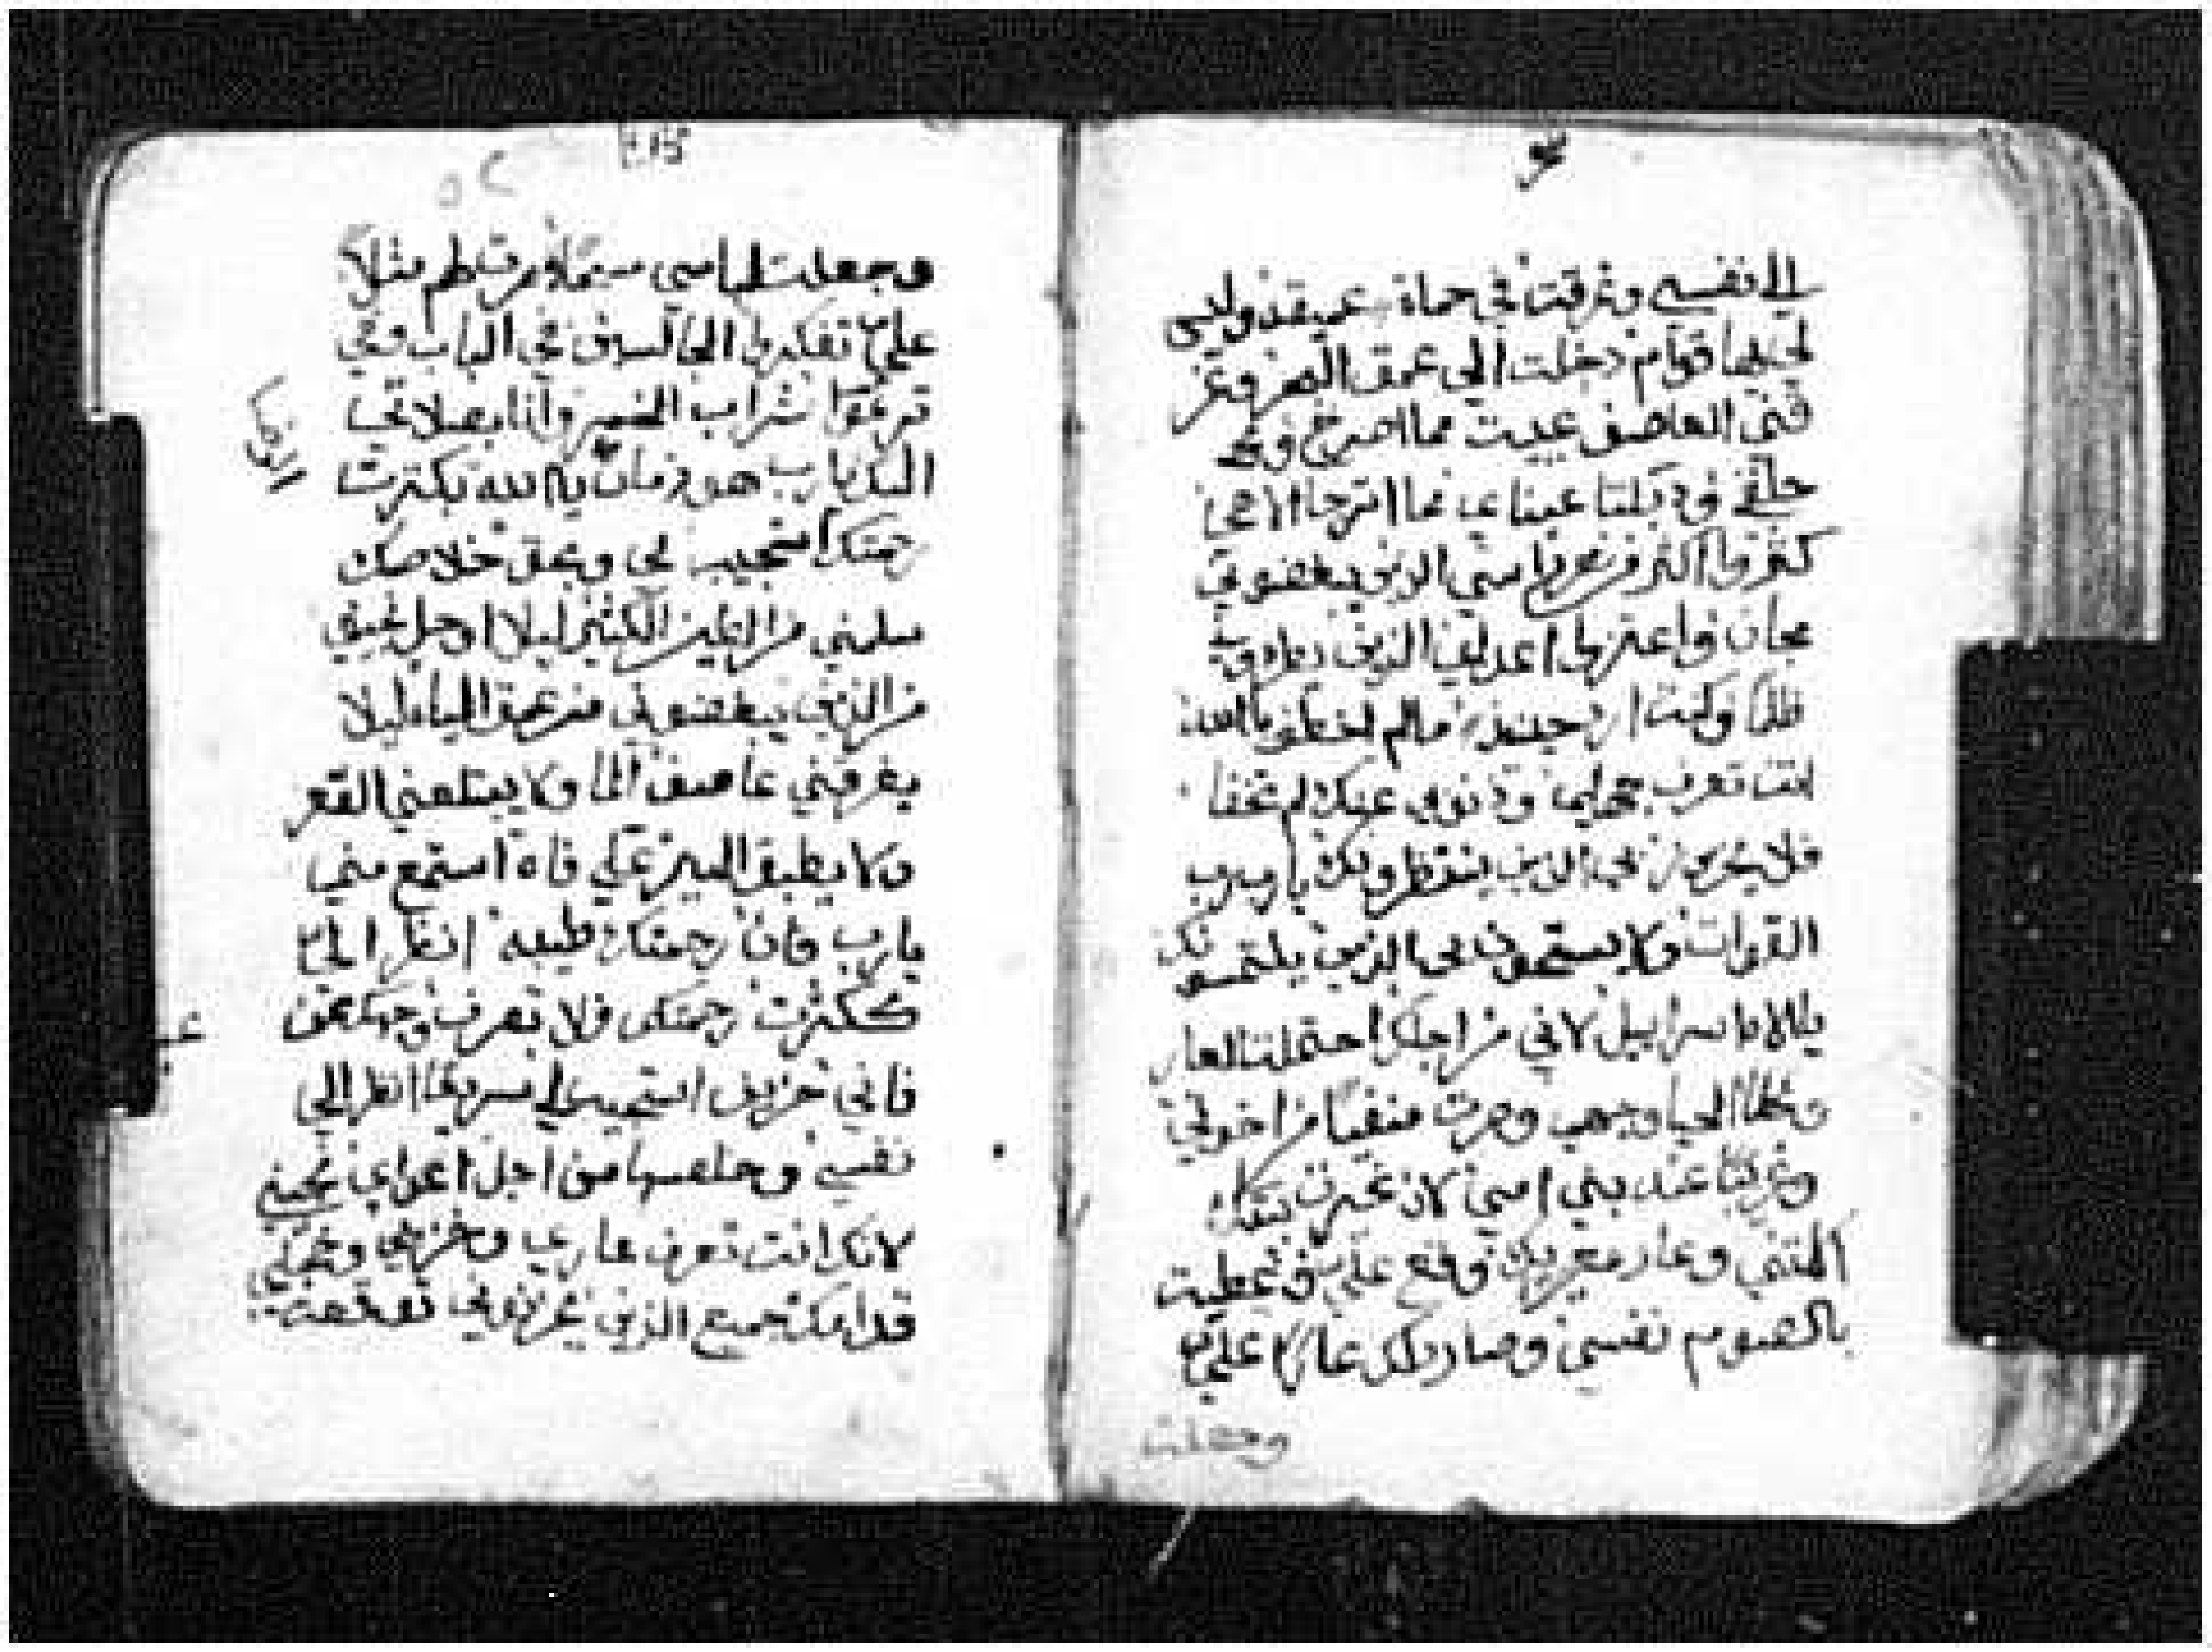 الي نفسي وغرقت في حماة عميقه وليس
لي بها قوام دخلت الي عمق البحر وغر
قني العاصف عييت مما اصرخ وبح
حلقي وذبلتا عيناي مما اترجا الاهي
كثروا اكثر من شعر راسي الذين يبغضوني
مجان واعتزوا اعداي الذين طردوني
ظلما وكنت ارد حينيذ مالم اخطف يا الله
انت تعرف جهلي وذنوبي عنك لم تخفا
فلا يخزى بي الذين ينتظرونك يارب رب
القوات ولا يستحون بي الذين يلتمسونك
يا الاه اسراييل لاني من اجلك احتملت العار
وغطا الحيا وجهي وصرت منفيا من اخوتي
وغريبا عند بني امي لان غيرة بيتك
اكلتني وعار معيريك وقع علي وغطيت
بالصوم نفسي وصار ذلك عارا علي
وجعلت
وجعلت لباسي مسحا وصرت لهم مثلا
علي تفكروا الجالسين في الباب وفي
ترنموا شراب الخمر وانا بصلاتي
اليك يارب هوذا زمان يا الله بكثرت
رحمتك استجيب لي وبحق خلاصك
سلمني من الطين الكثير ليلا اوحل نجيني
من الذين يبغضوني ومن عمق المياه ليلا
يغرقني عاصف الما ولا يبتلعني القعر
ولا يطبق البير علي فاه استمع مني
يارب فان رحمتك طيبه انظر الي
ككثرت رحمتك فلا تصرف وجهك عن
فاني حزين استجيب لي سريعا انظر الي
نفسي وخلصها من اجل اعداي نجيني
لانك انت تعرف عاري وخزيي وخجلي
قدامك جميع الذين يحزنوني توقعت